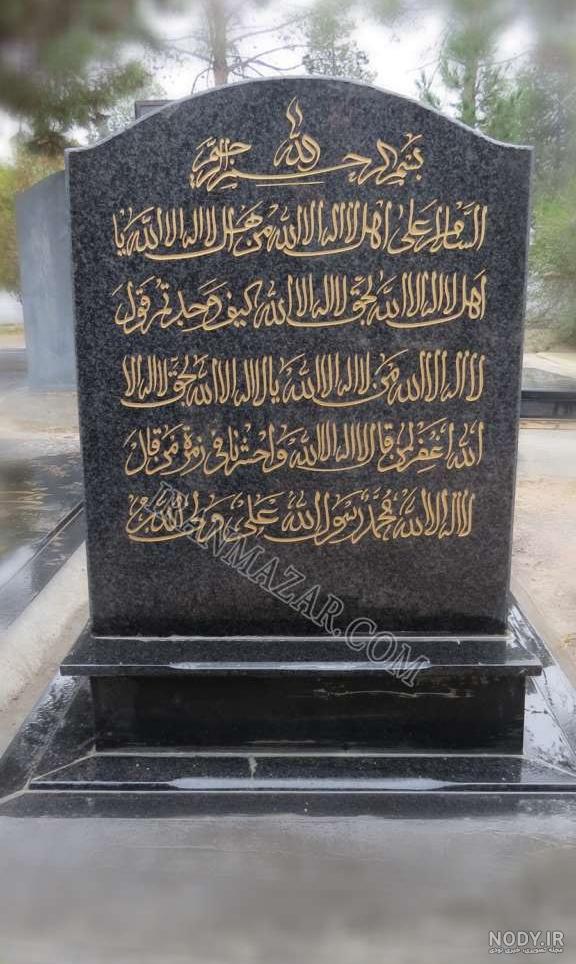 بسم الله الرحمن الرحیم
السلام علی اهل لا اله الا الله من اهل لا اله الا الله یا
اهل لا اله الا الله بحق لا اله الا الله کیف وجدتم قول
لا اله الا الله من لا اله الا الله یا لا اله الا الله بحق لا اله الا
الله اغفر لمن قال لا اله الا الله واحشرنا فی زمرة من قال
لا اله الا الله محمد رسول الله علی ولی الله
IRANMAZAR.COM
NODY.IR
مجله تصویری، خبری نودی